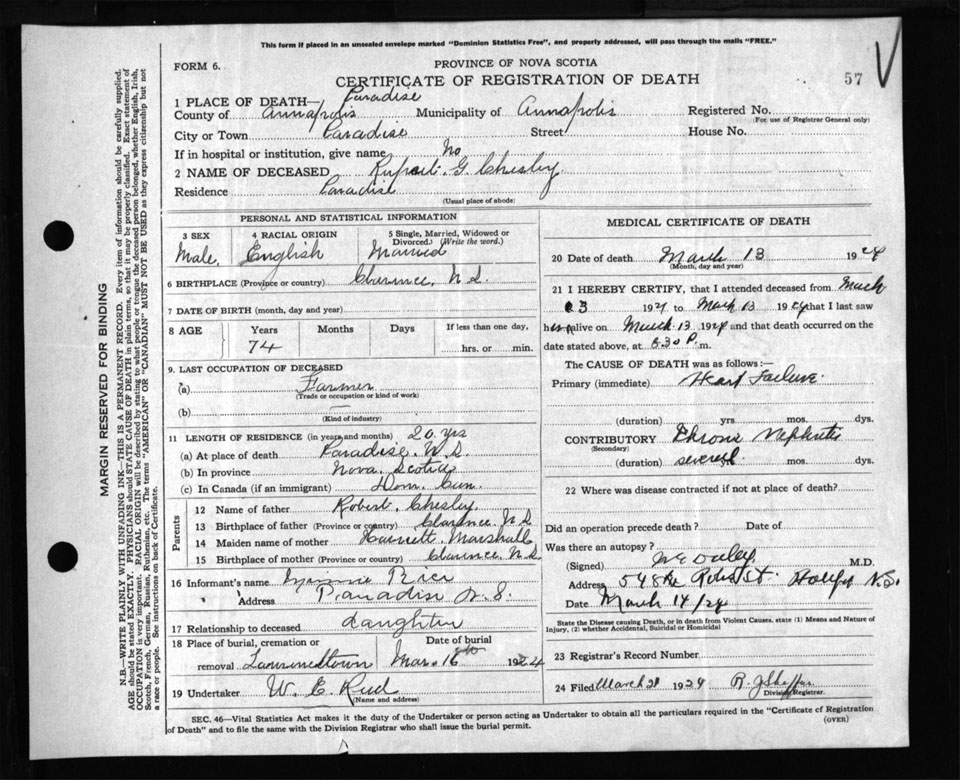 This form if placed in an unsealed envelope marked "Dominion Statistics Free", and properly addressed, will pass through the mails "FREE."
FORM 6.
PROVINCE OF NOVA SCOTIA
CERTIFICATE OF REGISTRATION OF DEATH
57
1 PLACE OF DEATH— Paradise
County of Annapolis Municipality of Annapolis Registered No.
(For use of Registrar General only)
City or Town Paradise Street House No.
If in hospital or institution, give name No
2 NAME OF DECEASED Rupert G. Chesley
Residence Paradise
(Usual place of abode)
PERSONAL AND STATISTICAL INFORMATION
3 SEX 4 RACIAL ORIGIN 5 Single, Married, Widowed or Divorced. (Write the word.)
Male, English Married
6 BIRTHPLACE (Province or country) Clarence, N S.
7 DATE OF BIRTH (month, day and year)
8 AGE Years Months Days If less than one day,
74 hrs. or min.
9. LAST OCCUPATION OF DECEASED
(a) Farmer
(Trade or occupation or kind of work)
(b)
(Kind of industry)
11 LENGTH OF RESIDENCE (in years and months) 20 yrs
(a) At place of death Paradise. N.S.
(b) In province Nova Scotia
(c) In Canada (if an immigrant) Dom. Can.
Parents
12 Name of father Robert Chesley
13 Birthplace of father (Province or country) Clarence. N S
14 Maiden name of mother Harriett Marshall
15 Birthplace of mother (Province or country) Clarence, N S.
16 Informant's name Rice
" Address Paradise N. S.
17 Relationship to deceased daughter
18 Place of burial, cremation or Date of burial
removal Lawrencetown Mar. 16th 1924
19 Undertaker W. E. Reed
(Name and address)
MEDICAL CERTIFICATE OF DEATH
20 Date of death March 13 1924
(Month, day and year)
21 I HEREBY CERTIFY, that I attended deceased from March
13 1924 to March 13 1924 that I last saw
h alive on March 13 1924 and that death occurred on the
date stated above, at 8.30 P. m.
The CAUSE OF DEATH was as follows:—
Primary (immediate) Heart Failure.
(duration) yrs. mos. dys.
CONTRIBUTORY Chronic Nephritis
(Secondary)
(duration) several mos. dys.
22 Where was disease contracted if not at place of death?
Did an operation precede death? Date of
Was there an autopsy?
(Signed) M.D.
Address 548 Robie St. Halifax N.S.
Date March 14/24
State the Disease causing Death, or in death from Violent Causes, state (1) Means and Nature of Injury, (2) whether Accidental, Suicidal or Homicidal
23 Registrar's Record Number
24 Filed March 21 1924 R. J Shaffner
Division Registrar.
SEC. 46—Vital Statistics Act makes it the duty of the Undertaker or person acting as Undertaker to obtain all the particulars required in the "Certificate of Registration
of Death" and to file the same with the Division Registrar who shall issue the burial permit. (OVER)
MARGIN RESERVED FOR BINDING
N.B.—WRITE PLAINLY WITH UNFADING INK—THIS IS A PERMANENT RECORD. Every item of information should be carefully supplied.
AGE should be stated EXACTLY. PHYSICIANS should STATE CAUSE OF DEATH in plain terms, so that it may be properly classified. Exact statement of
OCCUPATION is very important. RACIAL ORIGIN will be described by stating to what people or tongue the deceased person belonged, whether English, Irish,
Scotch, French, German, Russian, Ruthenian, etc. The terms "AMERICAN" OR "CANADIAN" MUST NOT BE USED as they express citizenship but not
a race or people. See instructions on back of Certificate.